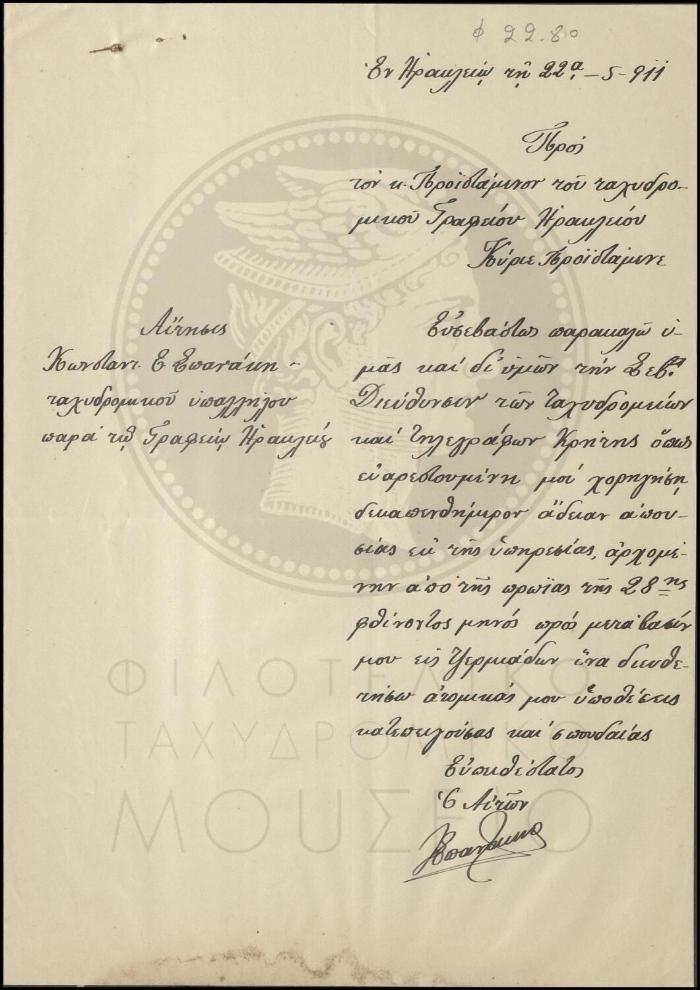 φ 22.80
Ἐν Ἡρακλείῳ τῇ 22ᾳ - 5 - 911
Πρός
τὸν κ. Προϊστάμενον τοῦ ταχυδρο-
μικοῦ Γραφείου Ἡρακλείου
Κύριε Προϊστάμενε
Αἴτησις
Κωνσταντ. Ε. Σπανάκη -
ταχυδρομικοῦ ὑπαλλήλου
παρὰ τῷ Γραφείῳ Ἡρακλείου
Εὐσεβάστως παρακαλῶ ὑ-
μᾶς καὶ δι' ὑμῶν τὴν Σεβ.
Διεύθυνσιν τῶν Ταχυδρομείων
καὶ Τηλεγράφων Κρήτης ὅπως
εὐαρεστουμένη μοὶ χορηγήσῃ
δεκαπενθήμερον ἄδειαν ἀπου-
σίας ἐκ τῆς ὑπηρεσίας, ἀρχομέ-
νην ἀπὸ τῆς πρωΐας τῆς 28ης
φθίνοντος μηνός πρὸς μετάβασίν
μου εἰς Τζερμιάδων ἵνα διευθε-
τήσω ἀτομικάς μου ὑποθέσεις
κατεπειγούσας καὶ σπουδαίας
Εὐπειθέστατος
Ὁ Αἰτῶν
ΦΙΛΟΤΕΛΙΚΟ
ΤΑΧΥΔΡΟΜΙΚΟ
ΜΟΥΣΕΙΟ